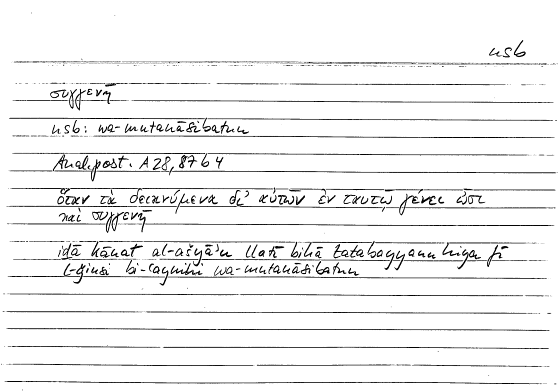 nsb
συγγενῆ
nsb: wa-mutanāsibatun
Anal. post. A 28, 87 b 4
ὅταν τὰ δεικνύμενα δι’ αὐτῶν ἐν ταυτῷ γένει ὦσι
καὶ συγγενῆ
iḏā kānat al-ašyāʾu llatī bihā tatabayyanu hiya fī
l-ǧinsi bi-ʿaynihi wa-mutanāsibatun